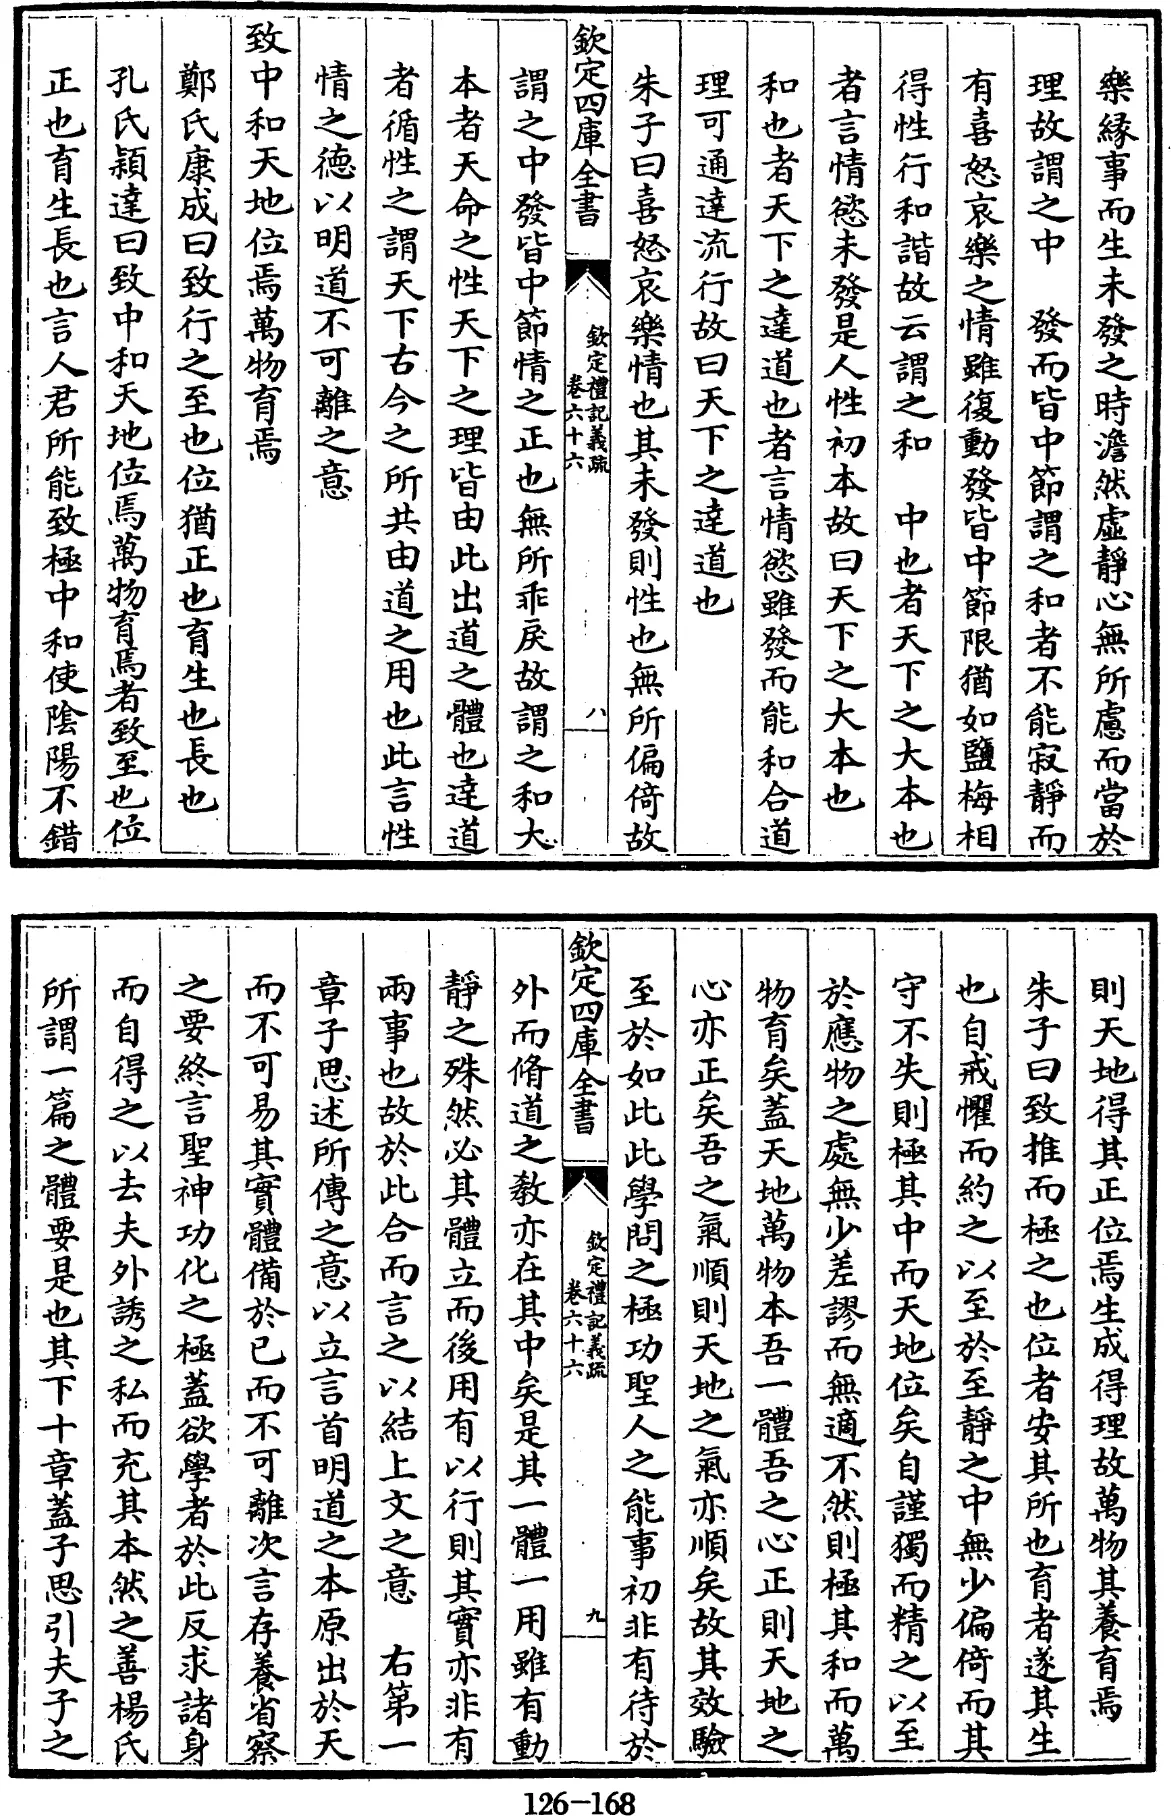 樂緣事而生未發之時澹然虛靜心無所慮而當於
理故謂之中　發而皆中節謂之和者不能寂靜而
有喜怒哀樂之情雖復動發皆中節限猶如鹽梅相
得性行和諧故云謂之和　中也者天下之大本也
者言情慾未發是人性初本故曰天下之大本也
和也者天下之達道也者言情慾雖發而能和合道
理可通達流行故曰天下之達道也
朱子曰喜怒哀樂情也其未發則性也無所偏倚故
欽定四庫全書
欽定禮記義疏
卷六十六
八
謂之中發皆中節情之正也無所乖戾故謂之和大
本者天命之性天下之理皆由此出道之體也達道
者循性之謂天下古今之所共由道之用也此言性
情之德以明道不可離之意
致中和天地位焉萬物育焉
鄭氏康成曰致行之至也位猶正也育生也長也
孔氏穎達曰致中和天地位焉萬物育焉者致至也位
正也育生長也言人君所能致極中和使陰陽不錯
則天地得其正位焉生成得理故萬物其養育焉
朱子曰致推而極之也位者安其所也育者遂其生
也自戒懼而約之以至於至靜之中無少偏倚而其
守不失則極其中而天地位矣自謹獨而精之以至
於應物之處無少差謬而無適不然則極其和而萬
物育矣蓋天地萬物本吾一體吾之心正則天地之
心亦正矣吾之氣順則天地之氣亦順矣故其效驗
至於如此此學問之極功聖人之能事初非有待於
欽定四庫全書
欽定禮記義疏
卷六十六
九
外而脩道之教亦在其中矣是其一體一用雖有動
靜之殊然必其體立而後用有以行則其實亦非有
兩事也故於此合而言之以結上文之意　右第一
章子思述所傳之意以立言首明道之本原出於天
而不可易其實體備於已而不可離次言存養省察
之要終言聖神功化之極蓋欲學者於此反求諸身
而自得之以去夫外誘之私而充其本然之善楊氏
所謂一篇之體要是也其下十章蓋子思引夫子之
126-168